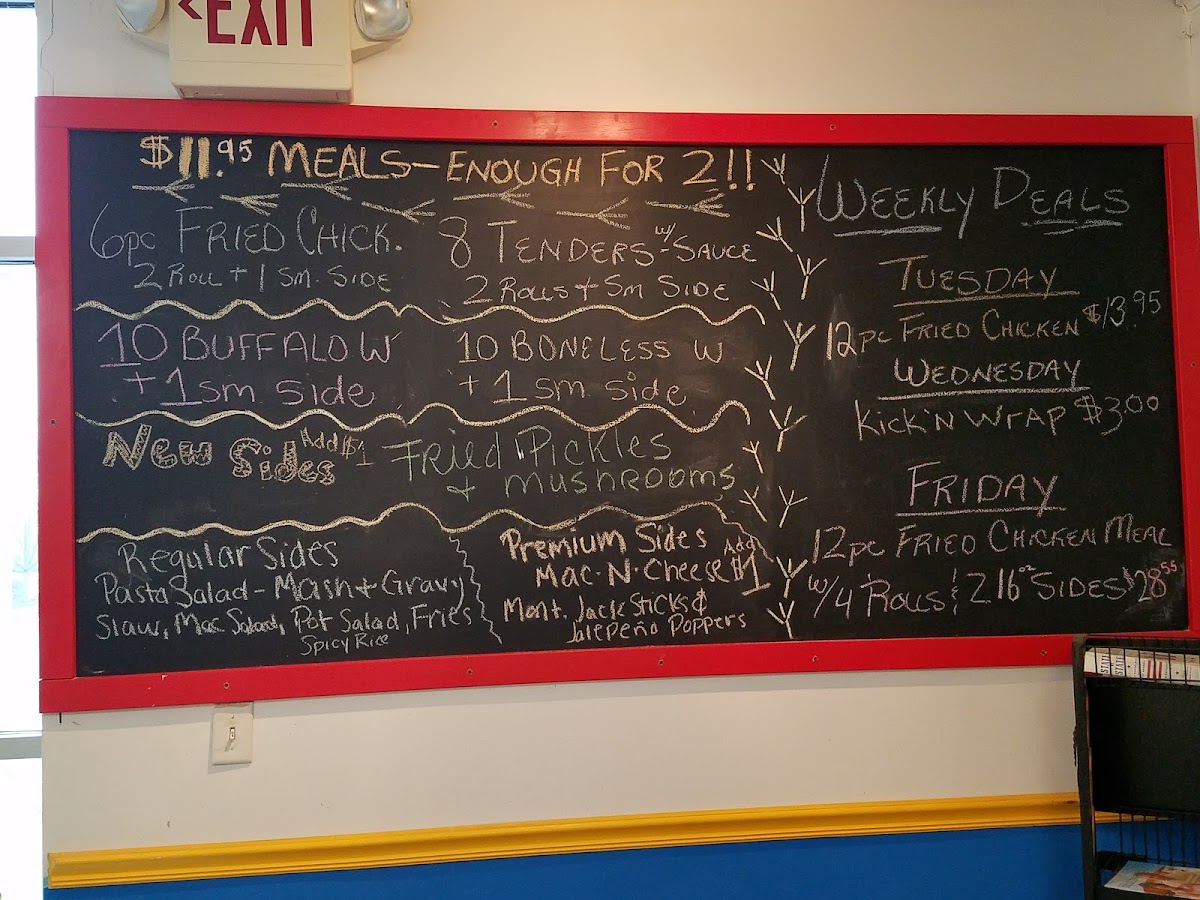 <EXIT
$11.95 MEALS - ENOUGH FOR 2!!
6pc FRIED CHICK.
2 ROLL + 1 SM. SIDE
8 TENDERS w/ SAUCE
2 ROLLS + SM SIDE
10 BUFFALO W
+ 1 sm side
10 BONELESS W
+ 1 sm side
New Sides Add $1
Fried Pickles
+ mushrooms
Regular Sides
Pasta Salad - Mash + Gravy
Slaw, Mac Salad, Pot Salad, Fries
Spicy Rice
Premium Sides
Add $1
Mac-N-Cheese
Mont. Jack Sticks &
Jalepeño Poppers
WEEKLY DEALS
TUESDAY
12pc FRIED CHICKEN $13.95
WEDNESDAY
Kick'N WRAP $3.00
FRIDAY
12pc FRIED CHICKEN MEAL
w/ 4 ROLLS & 2 16oz SIDES $28.55